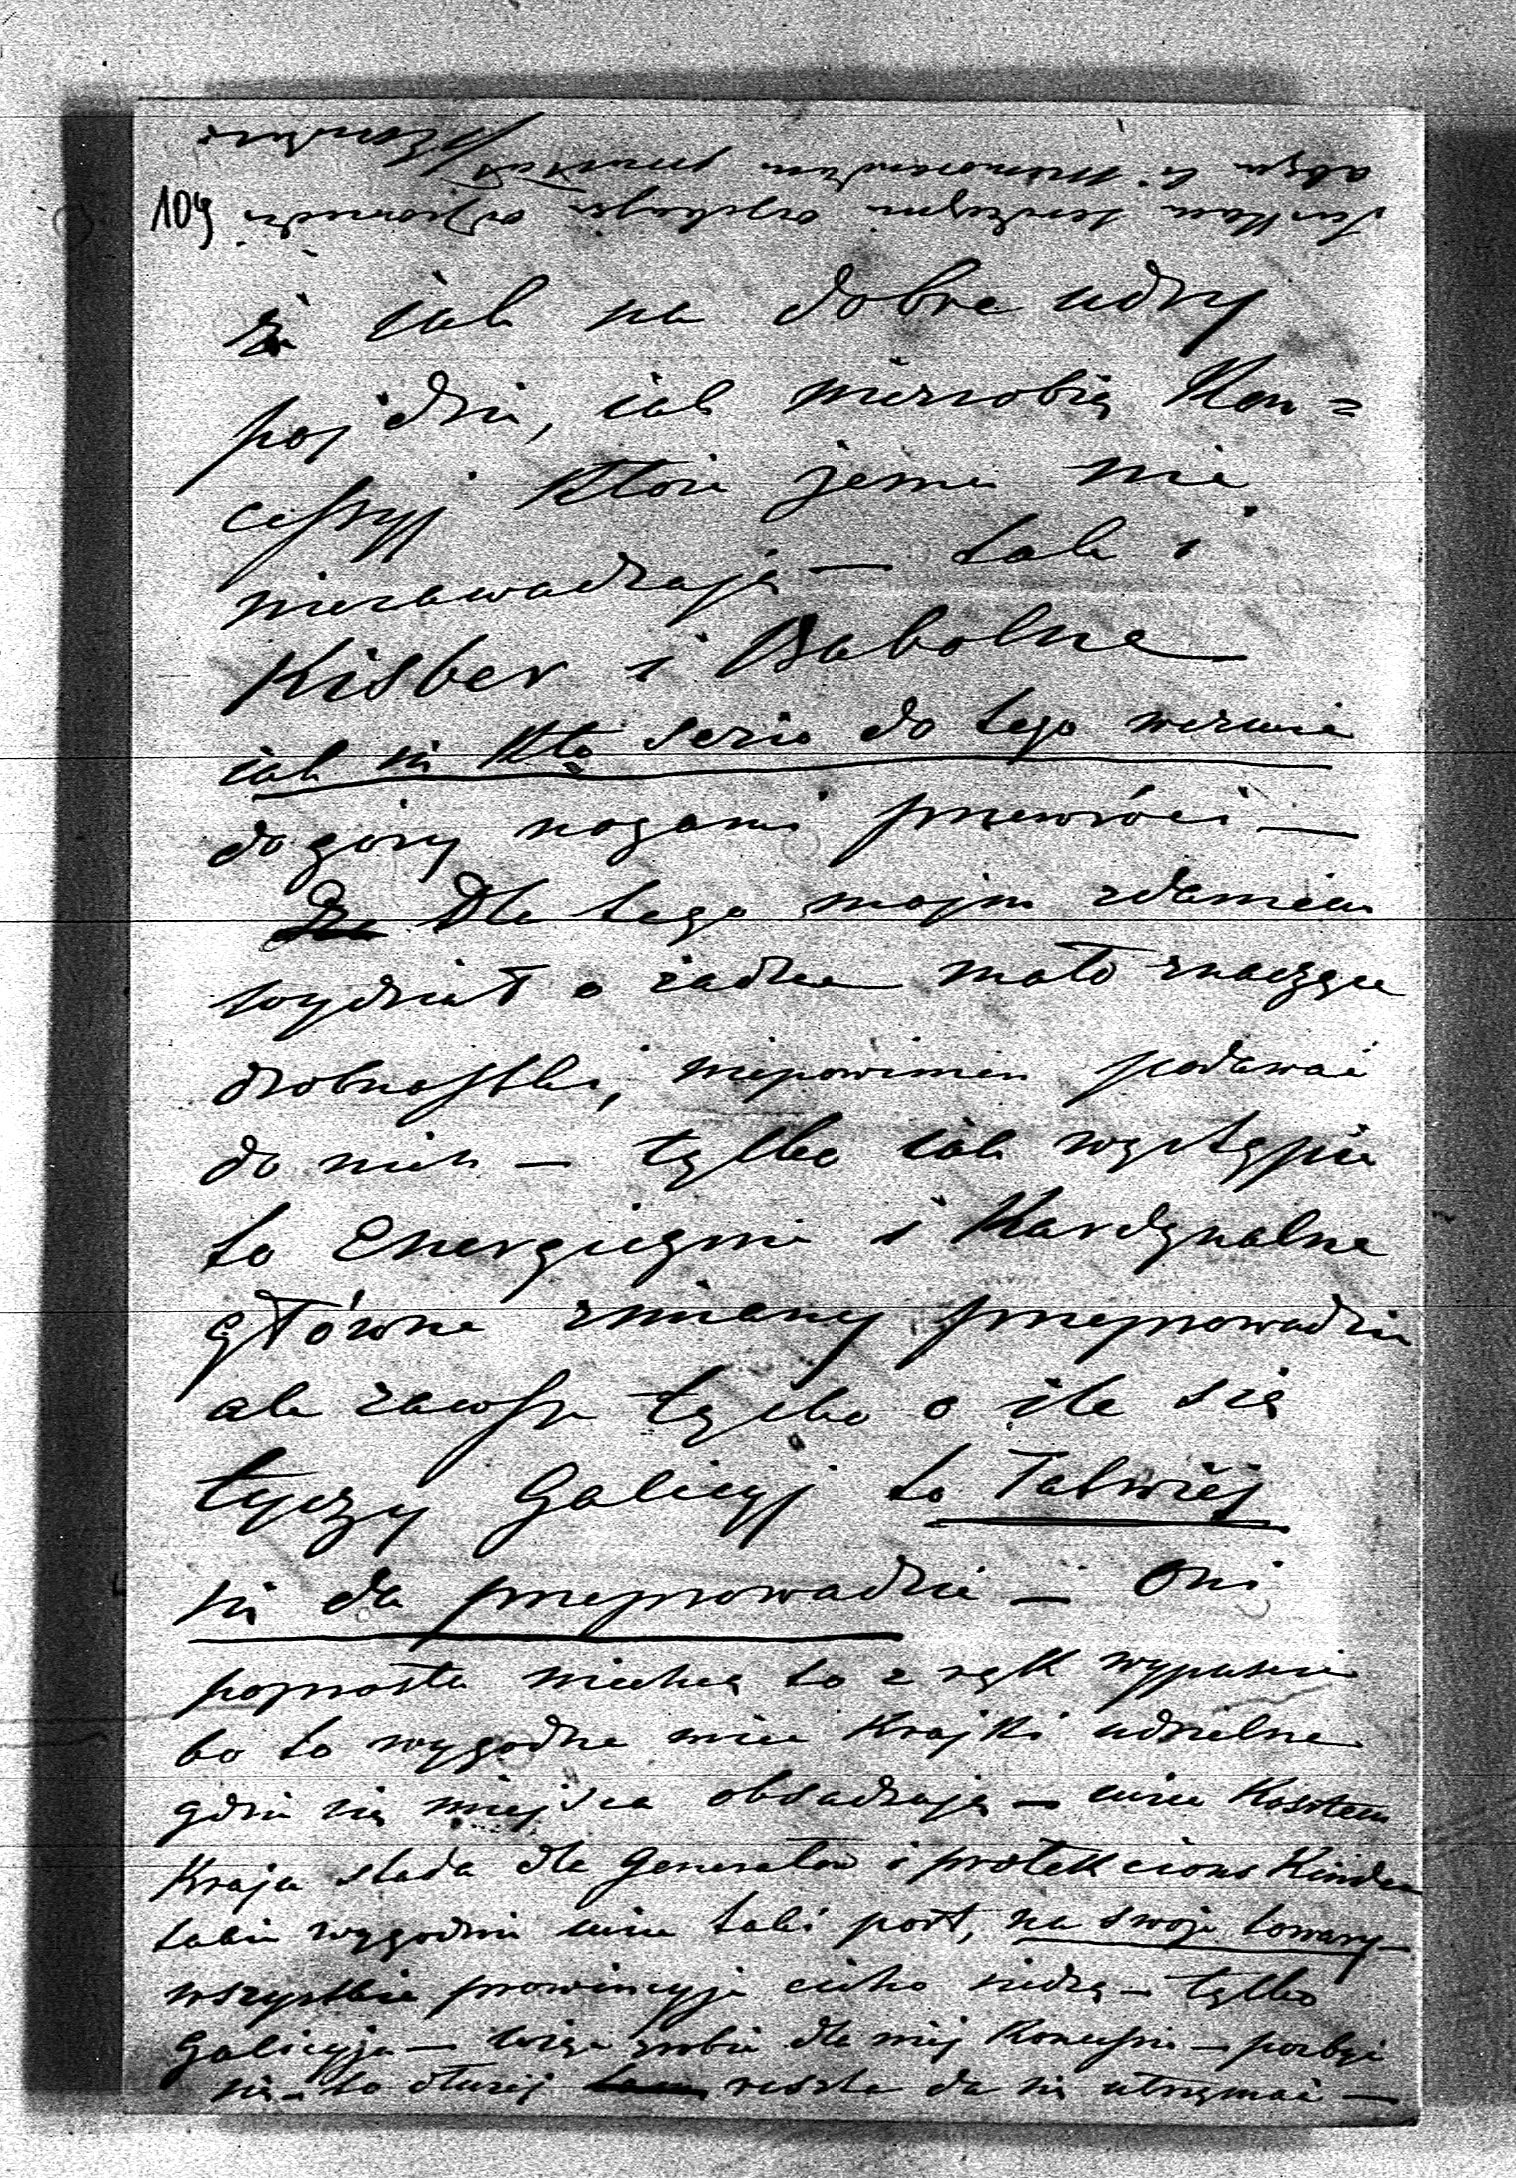 109
że jak na dobre udry
pojdzie, jak niezrobią Kon=
cessyj które jemu nie
niezawadzają — tak i
Kisber i Babolne
jak się kto serio do tego weźmie
do góry nogami przewróci —
Dla tego mojim zdaniem
wydział o żadne mało znaczące
drobnostki, niepowinien podawać
do nich — tylko jak wystąpić
to Energicznie i Kardynalne
główne zmiany przeprowadzić
ale zawsze tylko o ile się
tyczy Galicyj to łatwiéj
się da przeprowadzić — Oni
poprostu niechcą to z rąk wypuścić
bo to wygodne mieć Krajki udzielne
gdzie się miejsca obsadzają — mieć Kosztem
Kraju stada dla Generałów i protekcions Kinder
także wygodnie mieć taki port, na swoje towary —
wszystkie prowincyje cicho siedzą — tylko
Galicyja — więc zrobić dla niéj Koncessie — pozbyć
się — to dłużéj reszta da się utrzymać —